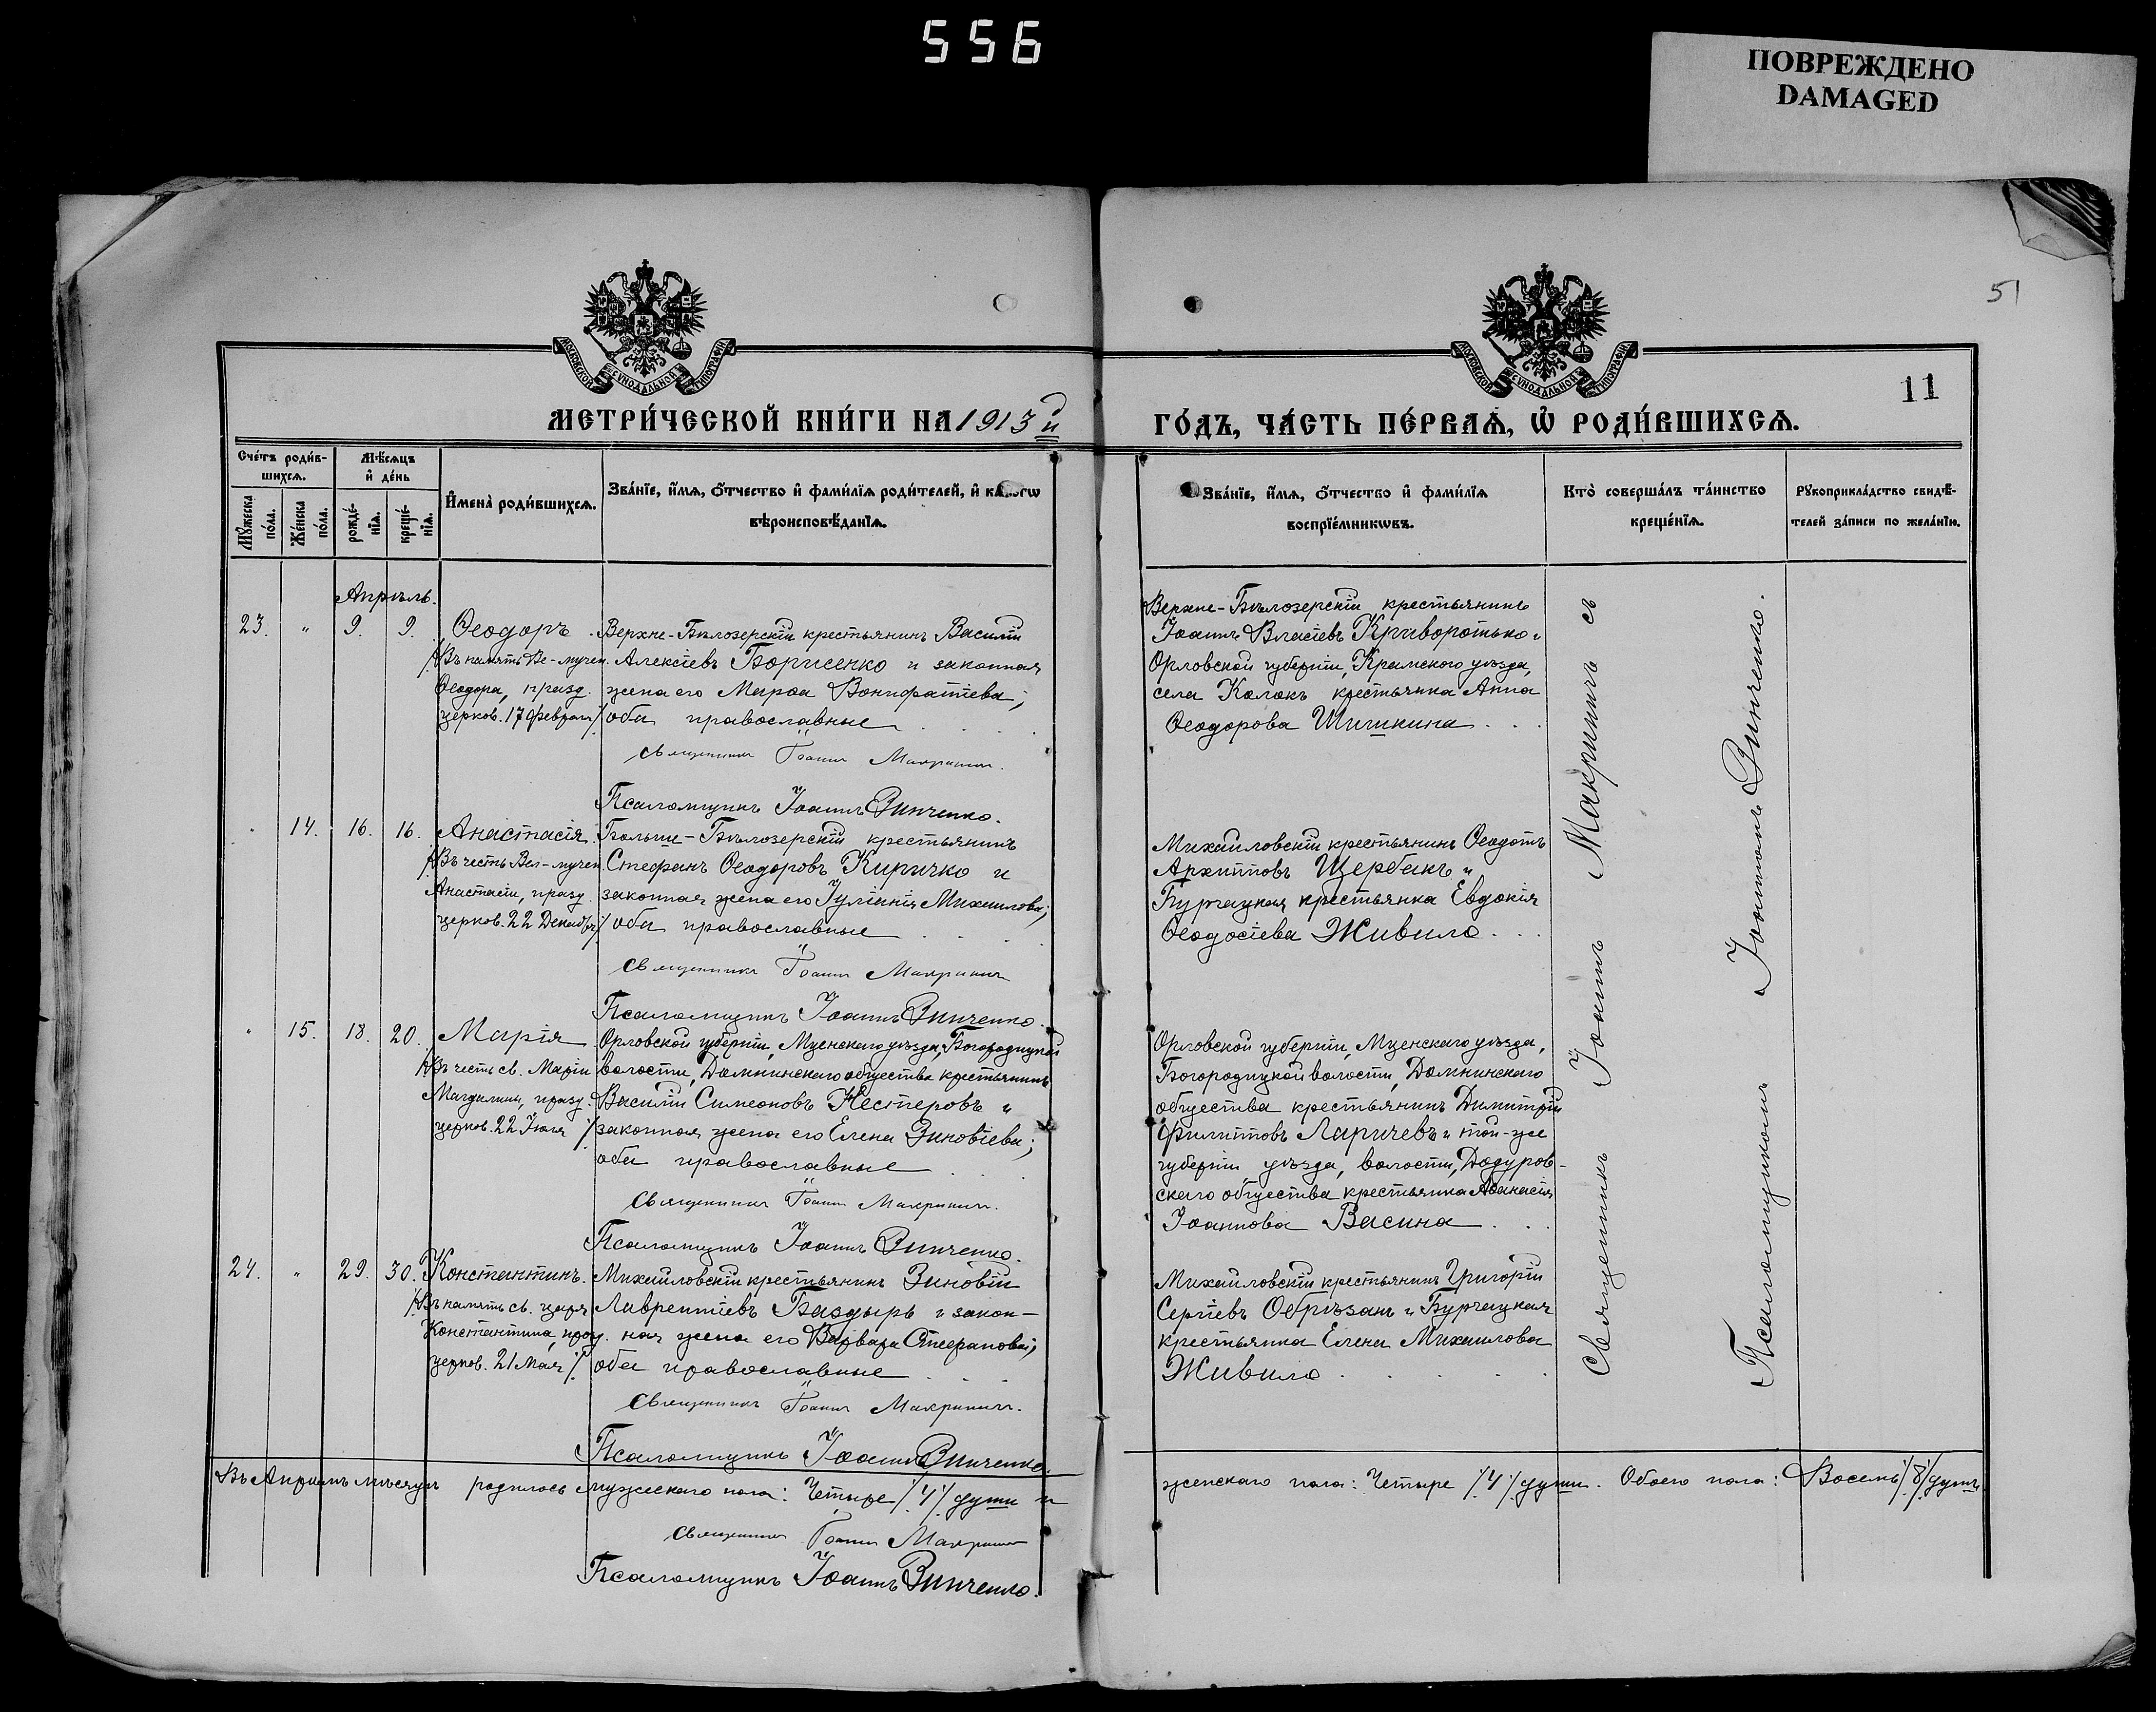 556
ПОВРЕЖДЕНО
DAMAGED
51
МОСКОВСКОЙ СУНОДАЛЬНОЙ ТИПОГРАФІИ
МОСКОВСКОЙ СУНОДАЛЬНОЙ ТИПОГРАФІИ
11
МЕТРИ́ЧЕСКОЙ КНИ́ГИ НА 1913й
ГО́ДЪ, ЧА́СТЬ ПЕ́РВАѦ, Ѡ҆ РОДИ́ВШИХСѦ.
Сче́тъ роди́в-
шихсѧ.
Мꙋ́жеска по́ла.
Же́нска по́ла.
Мѣ́сѧцъ
и҆ де́нь
рожде́-
нїѧ.
креще́-
нїѧ.
И҆мена̀ роди́вшихсѧ.
Зва́нїе, и҆́мѧ, ѻ҆́тчество и҆ фами́лїѧ роди́телей, и҆ како́гѡ
вѣроисповѣ́данїѧ.
Зва́нїе, и҆́мѧ, ѻ҆́тчество и҆ фами́лїѧ
воспрїе́мникѡвъ.
Кто̀ соверша́лъ та́инство
креще́нїѧ.
Рꙋкоприкла́дство свидѣ́-
телей за́писи по жела́нїю.
Апрѣль.
23. " 9. 9. Ѳеодоръ
/Въ память Ве-мучен.
Ѳеодора, празд.
церков. 17 Февраля/.
Верхне-Бѣлозерскій крестьянинъ Василій
Алексіевъ Борисенко и законная
жена его Марѳа Вонифатіева;
оба православные
Священникъ Іоаннъ Макринич.
Псаломщикъ Іоаннъ Зинченко.
Верхне-Бѣлозерскій крестьянинъ
Іоаннъ Власіевъ Криворотько и
Орловской губерніи, Крамского уѣзда,
села Колокъ крестьянка Анна
Ѳеодорова Шишкина
" 14. 16. 16. Анастасія
/Въ честь Вел-мучен.
Анастасіи, празд.
церков. 22 Декабр./
Больше-Бѣлозерскій крестьянинъ
Стефанъ Ѳеодоровъ Киричко и
законная жена его Іуліанія Михаилова;
оба православные
Священникъ Іоаннъ Макринич
Псаломщикъ Іоаннъ Зинченко.
Михайловскій крестьянинъ Ѳеодотъ
Архиповъ Щербакъ и
Бурчацкая крестьянка Евдокія
Ѳеодосіева Живило
" 15. 18. 20. Марія
/Въ честь св. Маріи
Магдалины, празд.
церков. 22 Іюля /.
Орловской губерніи, Мценскаго уѣзда, Богородицкой
волости, Домнинскаго общества крестьянинъ
Василій Симеоновъ Нестеровъ и
законная жена его Елена Зиновіева;
оба православные
Священникъ Іоаннъ Макринич.
Псаломщикъ Іоаннъ Зинченко.
Орловской губерніи, Мценскаго уѣзда,
Богородицкой волости, Домнинскаго
общества крестьянинъ Димитрій
Филипповъ Ларичевъ и той-же
губерніи уѣзда, волости, Додуров-
скаго общества крестьянка Аѳанасія
Іоаннова Васина
24. " 29. 30. Константинъ.
/Въ память св. царя
Константина, празд.
церков. 21 Мая /.
Михайловскій крестьянинъ Зиновій
Лаврентіевъ Баздырь и закон-
ная жена его Варвара Стефанова;
оба православные
Священникъ Іоаннъ Макринич.
Псаломщикъ Іоаннъ Зинченко.
Михайловскій крестьянинъ Григорій
Сергіевъ Обрѣзанъ и Бурчацкая
крестьянка Елена Михаилова
Живило
Священникъ Іоаннъ Макриничъ съ
Псаломщикомъ Іоанномъ Зинченко.
Въ Апрѣлѣ мѣсяцѣ родилось мужескаго пола: Четыре /4/ души и
женскаго пола: Четыре /4/ души. Обоего пола: Восемь /8/ душъ.
Священникъ Іоаннъ Макринич
Псаломщикъ Іоаннъ Зинченко.